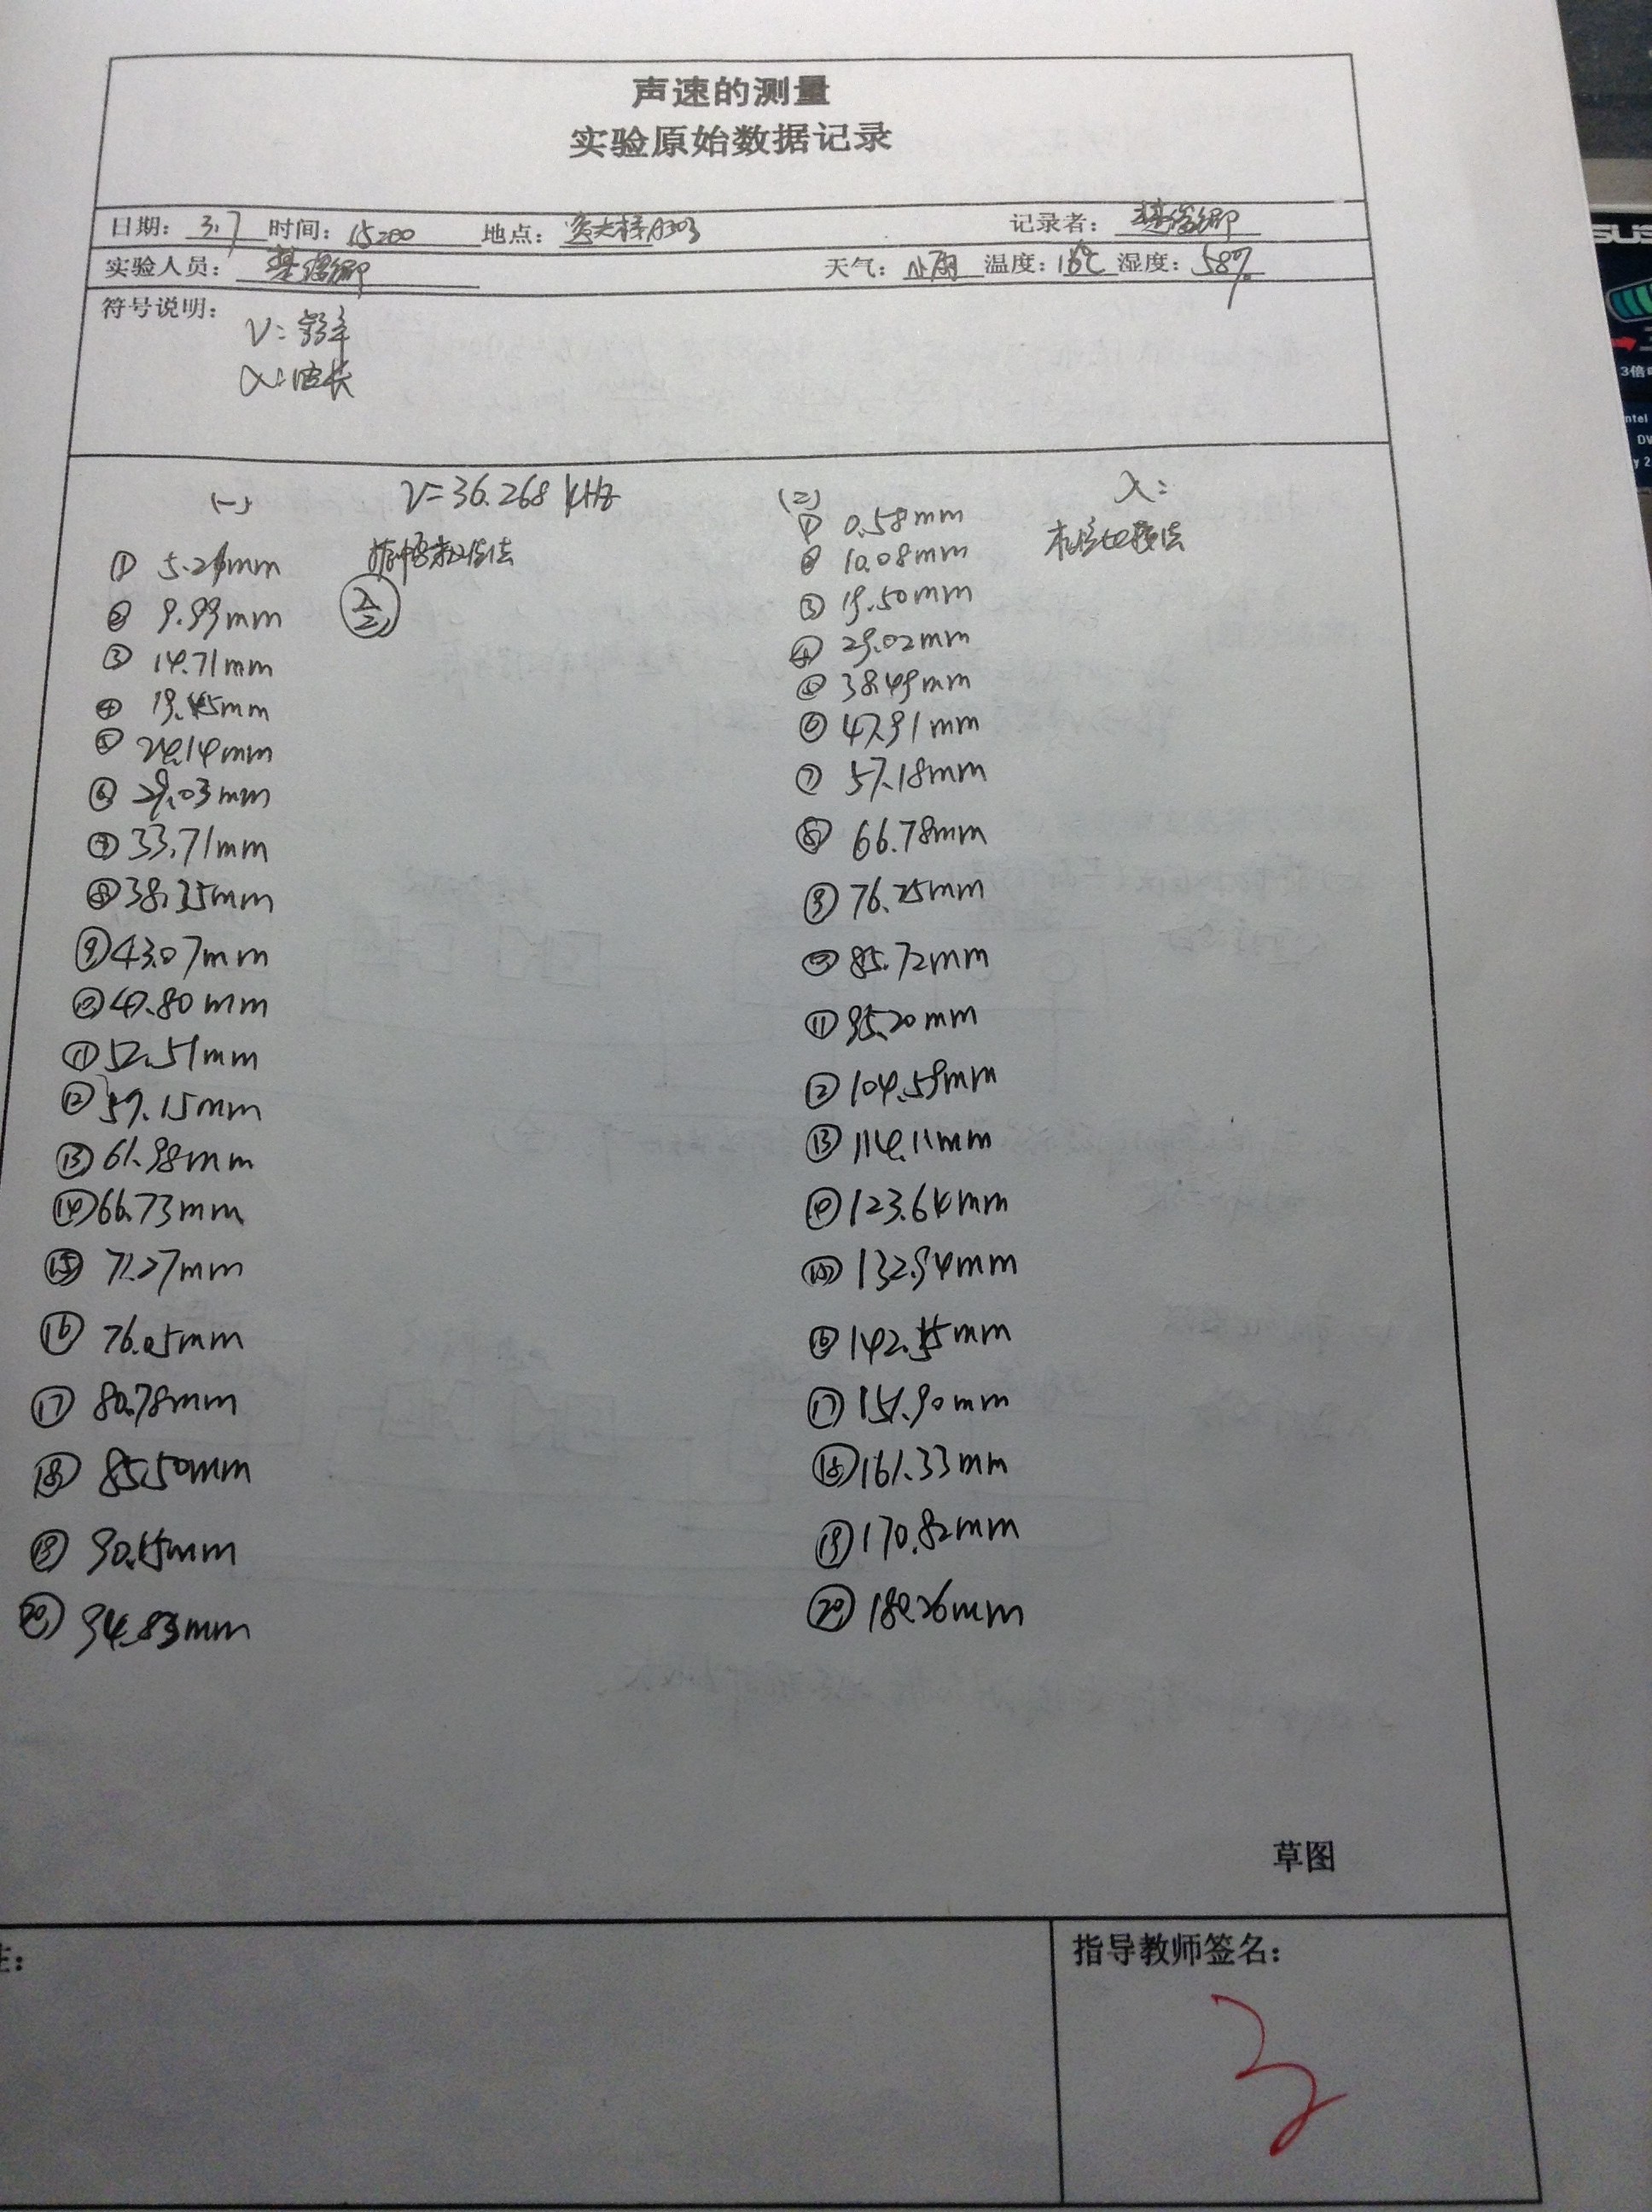 声速的测量
实验原始数据记录
日期: 3.7 时间: 15:00 地点: 记录者:
实验人员: 天气: 小雨 温度: 16℃ 湿度: 58%
符号说明:
ν: 频率
λ: 波长
(一) ν=36.268 kHz
振幅极值法
λ/2
① 5.21mm
② 9.99mm
③ 14.71mm
④ 19.45mm
⑤ 24.14mm
⑥ 29.03mm
⑦ 33.71mm
⑧ 38.35mm
⑨ 43.07mm
⑩ 47.80mm
⑪ 52.51mm
⑫ 57.15mm
⑬ 61.98mm
⑭ 66.73mm
⑮ 71.27mm
⑯ 76.05mm
⑰ 80.78mm
⑱ 85.50mm
⑲ 90.15mm
⑳ 94.83mm
(二) λ:
相位比较法
① 0.58mm
② 10.08mm
③ 19.50mm
④ 29.02mm
⑤ 38.49mm
⑥ 47.91mm
⑦ 57.18mm
⑧ 66.78mm
⑨ 76.25mm
⑩ 85.72mm
⑪ 95.20mm
⑫ 104.59mm
⑬ 114.11mm
⑭ 123.64mm
⑮ 132.94mm
⑯ 142.35mm
⑰ 151.90mm
⑱ 161.33mm
⑲ 170.82mm
⑳ 180.26mm
草图
注:
指导教师签名:
SUS
3倍
ntel
DV
y 2